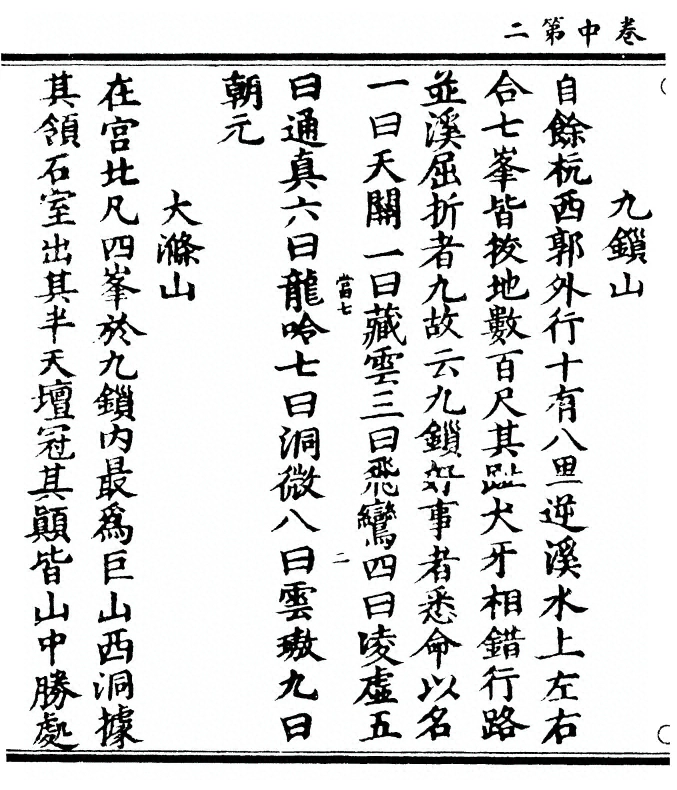 卷中第二
九鎖山
自餘杭西郭外行十有八里逆溪水上左右
合七峯皆拔地數百尺其趾犬牙相錯行路
並溪屈折者九故云九鎖好事者悉命以名
一曰天關一曰藏雲三曰飛鸞四曰凌虛五
當七 二
曰通真六曰龍吟七曰洞微八曰雲璈九曰
朝元
大滌山
在宮北凡四峯於九鎖內最爲巨山西洞據
其領石室出其半天壇冠其顛皆山中勝處